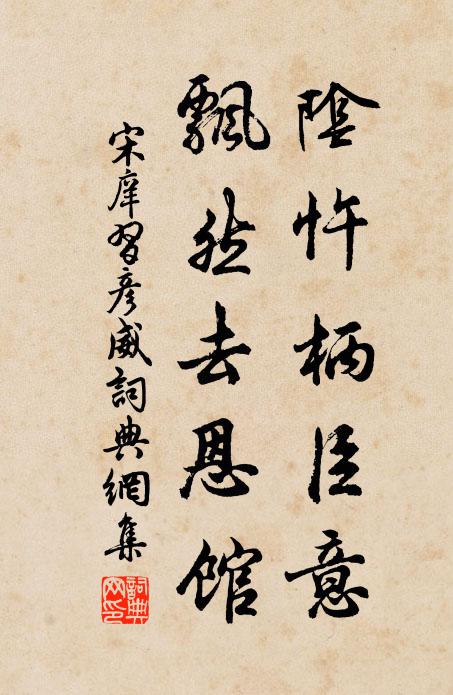 陰忤柄臣意
飄然去恩館
宋庠習彥威詞典網集
詞典